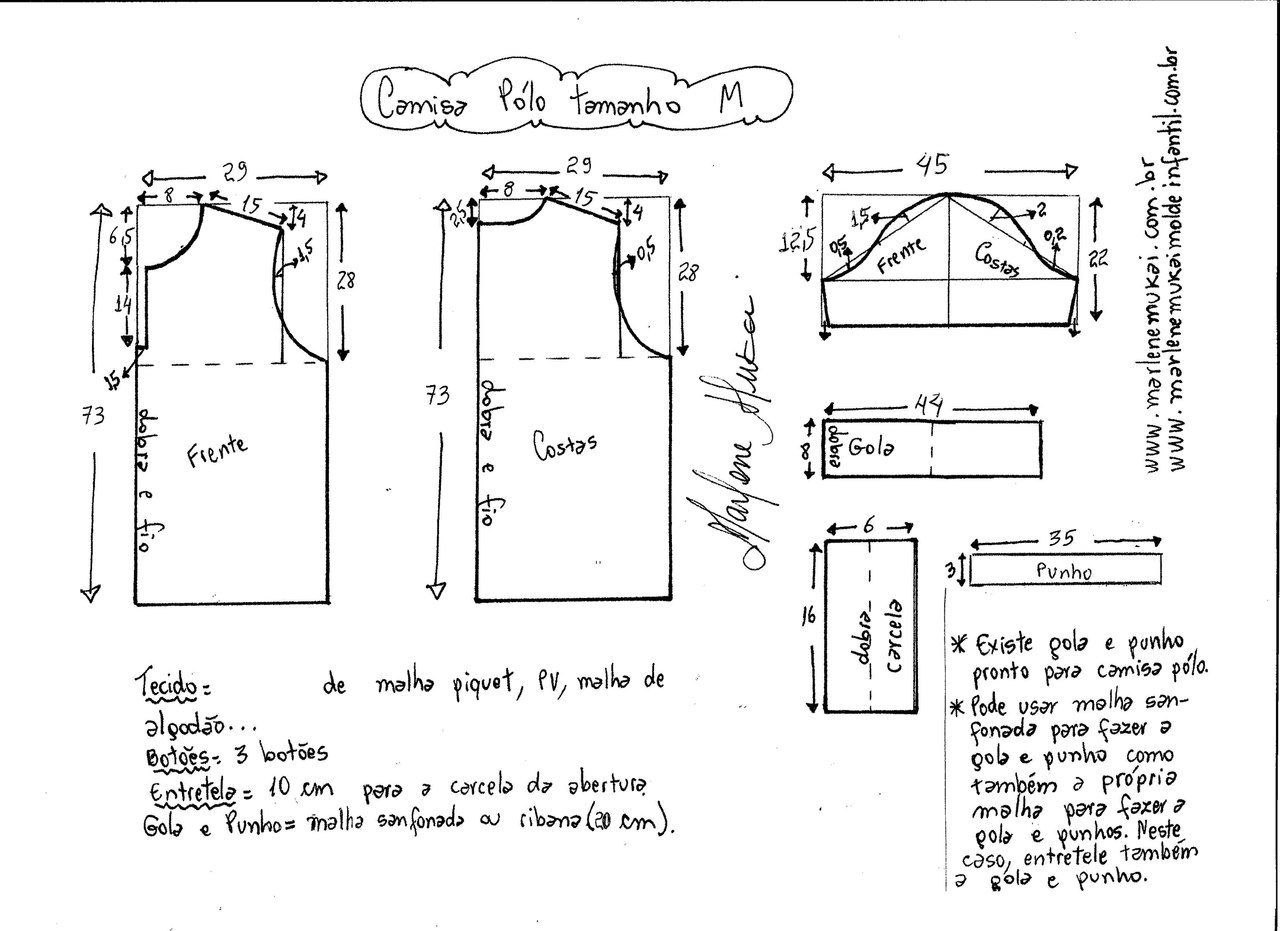 Camisa Pólo tamanho M
29
8
15
4
6,5
1,5
28
14
1,5
73
dobra e fio
Frente
29
8
15
4
2,5
0,5
28
73
dobra e fio
Costas
Marlene Mukai
45
12,5
1,5
2
0,5
0,2
22
Frente
Costas
44
8
dobra
Gola
6
16
dobra
carcela
35
3
Punho
www.marlenemukai.com.br
www.marlenemukaimoldeinfantil.com.br
Tecido= de malha piquet, PV, malha de
algodão...
Botões= 3 botões
Entretela= 10 cm para a carcela da abertura
Gola e Punho= malha sanfonada ou ribana (20 cm).
* Existe gola e punho
pronto para camisa pólo.
* Pode usar malha san-
fonada para fazer a
gola e punho como
também a própria
malha para fazer a
gola e punhos. Neste
caso, entretele também
a gola e punho.